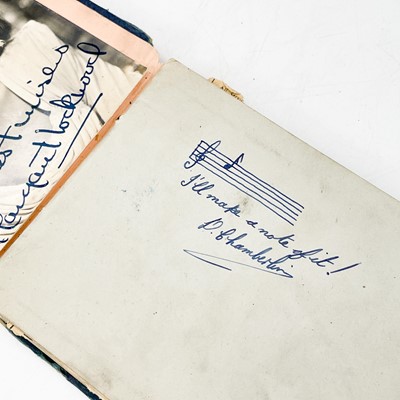 Best wishes
Margaret Lockwood
I'll make a note of it!
D. Chamberlin